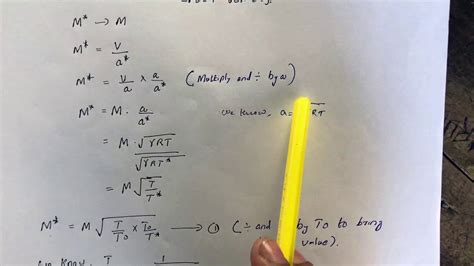 M* → M
M* = V/a*
M* = V/a × a/a* (Multiply and ÷ by a)
M* = M. a/a* we know, a = RT
= M. √γRT/√γRT*
= M √T/T*
M* = M √T/T₀ × T₀/T* → ① (÷ and by T₀ to bring
value).
T 1